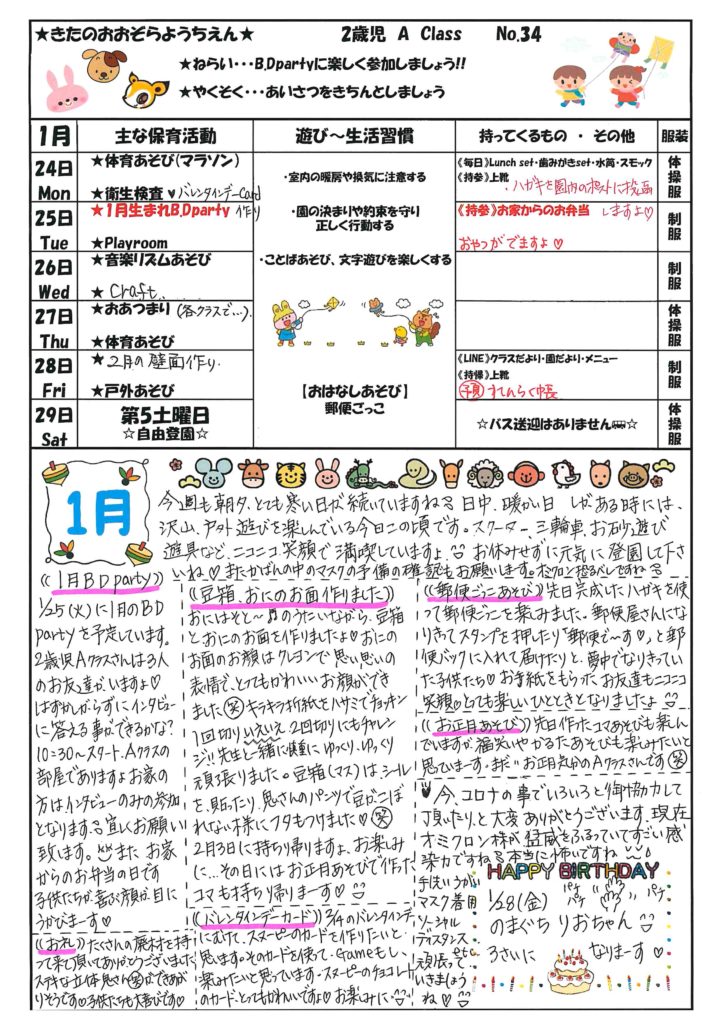 ★きたのおおぞらようちえん★ 2歳児 A Class No.34
★ねらい・・・B.Dpartyに楽しく参加しましょう!!
★やくそく・・・あいさつをきちんとしましょう
1月 主な保育活動 遊び～生活習慣 持ってくるもの ・ その他 服装
24日 Mon
★体育あそび(マラソン)
★衛生検査 ♥バレンタインデーCard作り
25日 Tue
★1月生まれB.Dparty
★Playroom
26日 Wed
★音楽リズムあそび
★Craft
27日 Thu
★おあつまり(各クラスで…)
★体育あそび
28日 Fri
★2月の壁面作り.
★戸外あそび
29日 Sat
第5土曜日
☆自由登園☆
・室内の暖房や換気に注意する
・園の決まりや約束を守り
正しく行動する
・ことばあそび、文字遊びを楽しくする
【おはなしあそび】
郵便ごっこ
《毎日》Lunch set・歯みがきset・水筒・スモック
《持参》上靴
・ハガキを園内のポストに投函
しますよ♡
《持参》お家からのお弁当
おやつがでますよ♡
《LINE》クラスだより・園だより・メニュー
《持帰》上靴
予 すてんらく帳
☆バス送迎はありません☆
体操服
制服
制服
体操服
制服
体操服
1月
今週も朝夕、とても寒い日が続いていますね 日中、暖かい日 しがある時には、
沢山、戸外遊びを楽しんでいる今日この頃です。スクーター、三輪車、お砂遊び
遊具など、ニコニコ笑顔で満喫していますよ。お休みせずに元気に登園して下さ
いね♡またかばんの中のマスクの予備の確認もお願いします。オミクロン恐るべしですね
((1月BDparty))
1/25(火)に1月のBD
partyを予定しています。
2歳児Aクラスさんは3人
のお友達がいますよ♡
はずかしがらずにインタビュー
に答える事ができるかな?
10:30~スタート.Aクラスの
部屋でありますよ お家の
方は、インタビューのみの参加
となります 宜しくお願い
致します。また お家
からのお弁当の日です
子供たちが喜ぶ顔が目に
うかびまーす♡
((お礼))たくさんの廃材を持っ
て来て頂いてありがとうございました
ステキな立体鬼さん㊗ができあが
りそうです♡子供たちも大喜びです♡
((豆箱、おにのお面作りました))
おにはそと~♬のうたいながら、豆箱
とおにのお面を作りましたよ♡おにの
お面のお顔はクレヨンで思い思いの
表情で、とてもかわいいお顔ができ
ました(笑)キラキラ折紙をハサミでチョッキン
1回切りいえいえ、2回切りにもチャレン
ジ!!先生と一緒に慎重にゆっくり、ゆっくり
頑張りました。豆箱(マス)は、シール
を貼ったり、鬼さんのパンツで豆がこぼ
れない様にフタもつけました♡(笑)
2月3日に持ち帰りますよ、お楽しみ
に…その日にはお正月あそびで作った
コマも持ち帰りまーす♡
((バレンタインデーカード))2/4のバレンタインデー
にむけた、スヌーピーのカードを作りたいと
思います。そのカードを使って、Gameもし、
楽みたいと思っています。スヌーピーのチョコレート
のカード、とてもかわいいですよ♡お楽しみに
((郵便ごっこあそび))先日完成したハガキを使
って郵便ごっこを楽みました。郵便屋さんにな
りきってスタンプを押したり"郵便で~す♡、と郵
便バックに入れて届けたりと、夢中でなりきってい
た子供たち♡お手紙をもらったお友達もニコニコ
笑顔♡とても楽しいひとときとなりましたよ
((お正月あそび))先日作ったコマあそびも楽ん
でいますが、福笑いやかるたあそびも楽みたいと
思ってまーす.まだ"お正月気分のAクラスさんです(笑)
今、コロナの事でいろいろと御協力して
頂いたりと大変ありがとうございます.現在
オミクロン株が猛威をふるっていてすごい感
染力ですね 本当に怖いですね
手洗いうがい
マスク着用
ソーシャル
ディスタンス
頑張って
いきましょう
ね♡
HAPPY BIRTHDAY
1/28(金) パチパチ パチ
のまぐち りおちゃん
3さいに なりまーす♡